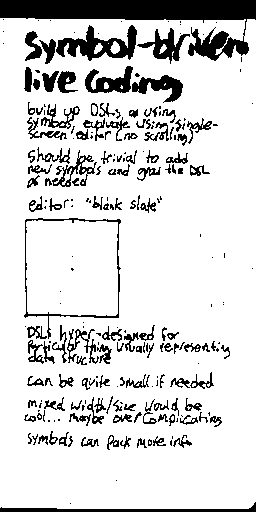 symbol-driven
live coding
build up DSLs as using
symbols, evaluate using single-
screen editor (no scrolling)
should be trivial to add
new symbols and grow the DSL
as needed
editor: "blank slate"
DSLs hyper-designed for
particular thing, usually representing
data structure
can be quite small if needed
mixed width/size would be
cool... maybe over complicating
symbols can pack more info